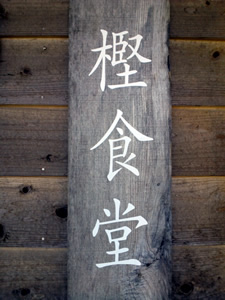 樫食堂